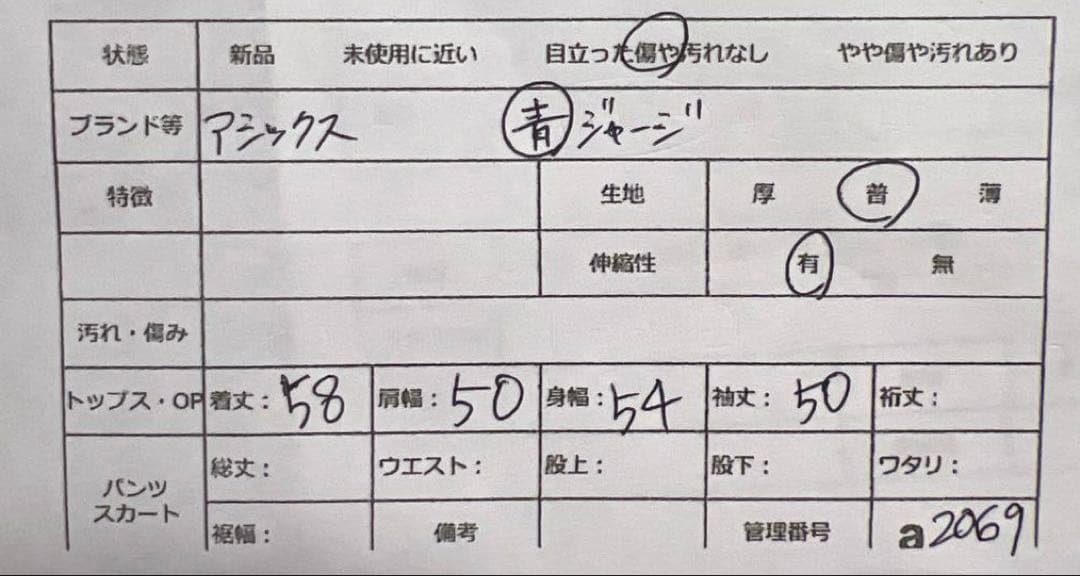 状態 新品 未使用に近い 目立った傷や汚れなし やや傷や汚れあり
ブランド等 アシックス 青 ジャージ
特徴 生地 厚 普 薄
伸縮性 有 無
汚れ・傷み
トップス・OP 着丈：58 肩幅：50 身幅：54 袖丈：50 裄丈：
パンツ スカート 総丈： ウエスト： 股上： 股下： ワタリ：
裾幅： 備考 管理番号 a2069